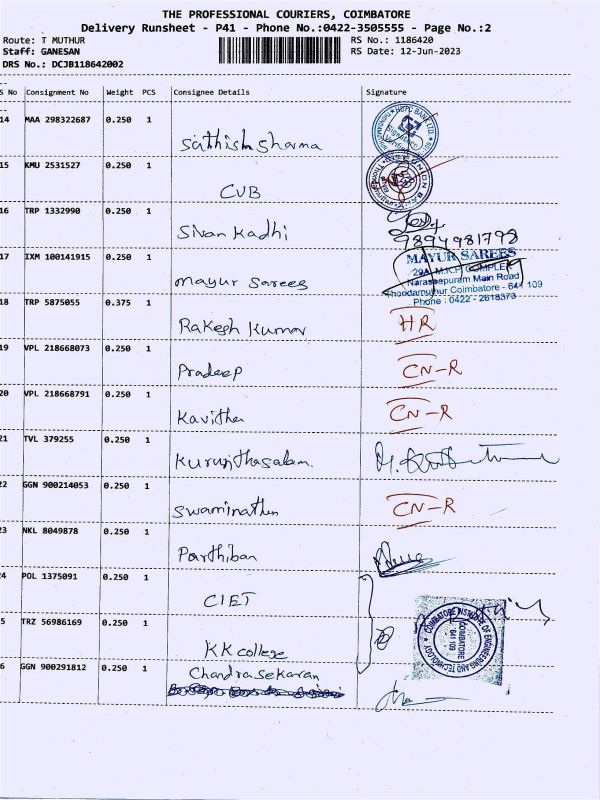 THE PROFESSIONAL COURIERS, COIMBATORE
Delivery Runsheet - P41 - Phone No.:0422-3505555 - Page No.:2
Route: T MUTHUR
RS No.: 1186420
Staff: GANESAN
RS Date: 12-Jun-2023
DRS No.: DCJB118642002
S No Consignment No Weight PCS Consignee Details Signature
14 MAA 298322687 0.250 1
Sathish Sharma
15 KMU 2531527 0.250 1
CUB
16 TRP 1332990 0.250 1
Sivan Kadhi
9894981798
17 IXM 100141915 0.250 1
Mayur Sarees
MAYUR SAREES
29A, M.K.P. COMPLEX
Naraseepuram Main Road
Thondamuthur Coimbatore - 641 109
Phone : 0422 - 2618373
18 TRP 5875055 0.375 1
Rakesh Kumar HR
19 VPL 218668073 0.250 1
Pradeep CN-R
20 VPL 218668791 0.250 1
Kavitha CN-R
21 TVL 379255 0.250 1
22 GGN 900214053 0.250 1
Swaminathan CN-R
23 NKL 8049878 0.250 1
Parthiban
24 POL 1375091 0.250 1
CIET
COIMBATORE INSTITUTE OF ENGINEERING AND TECHNOLOGY
COIMBATORE
641 109
5 TRZ 56986169 0.250 1
KK college
6 GGN 900291812 0.250 1
Chandrasekaran